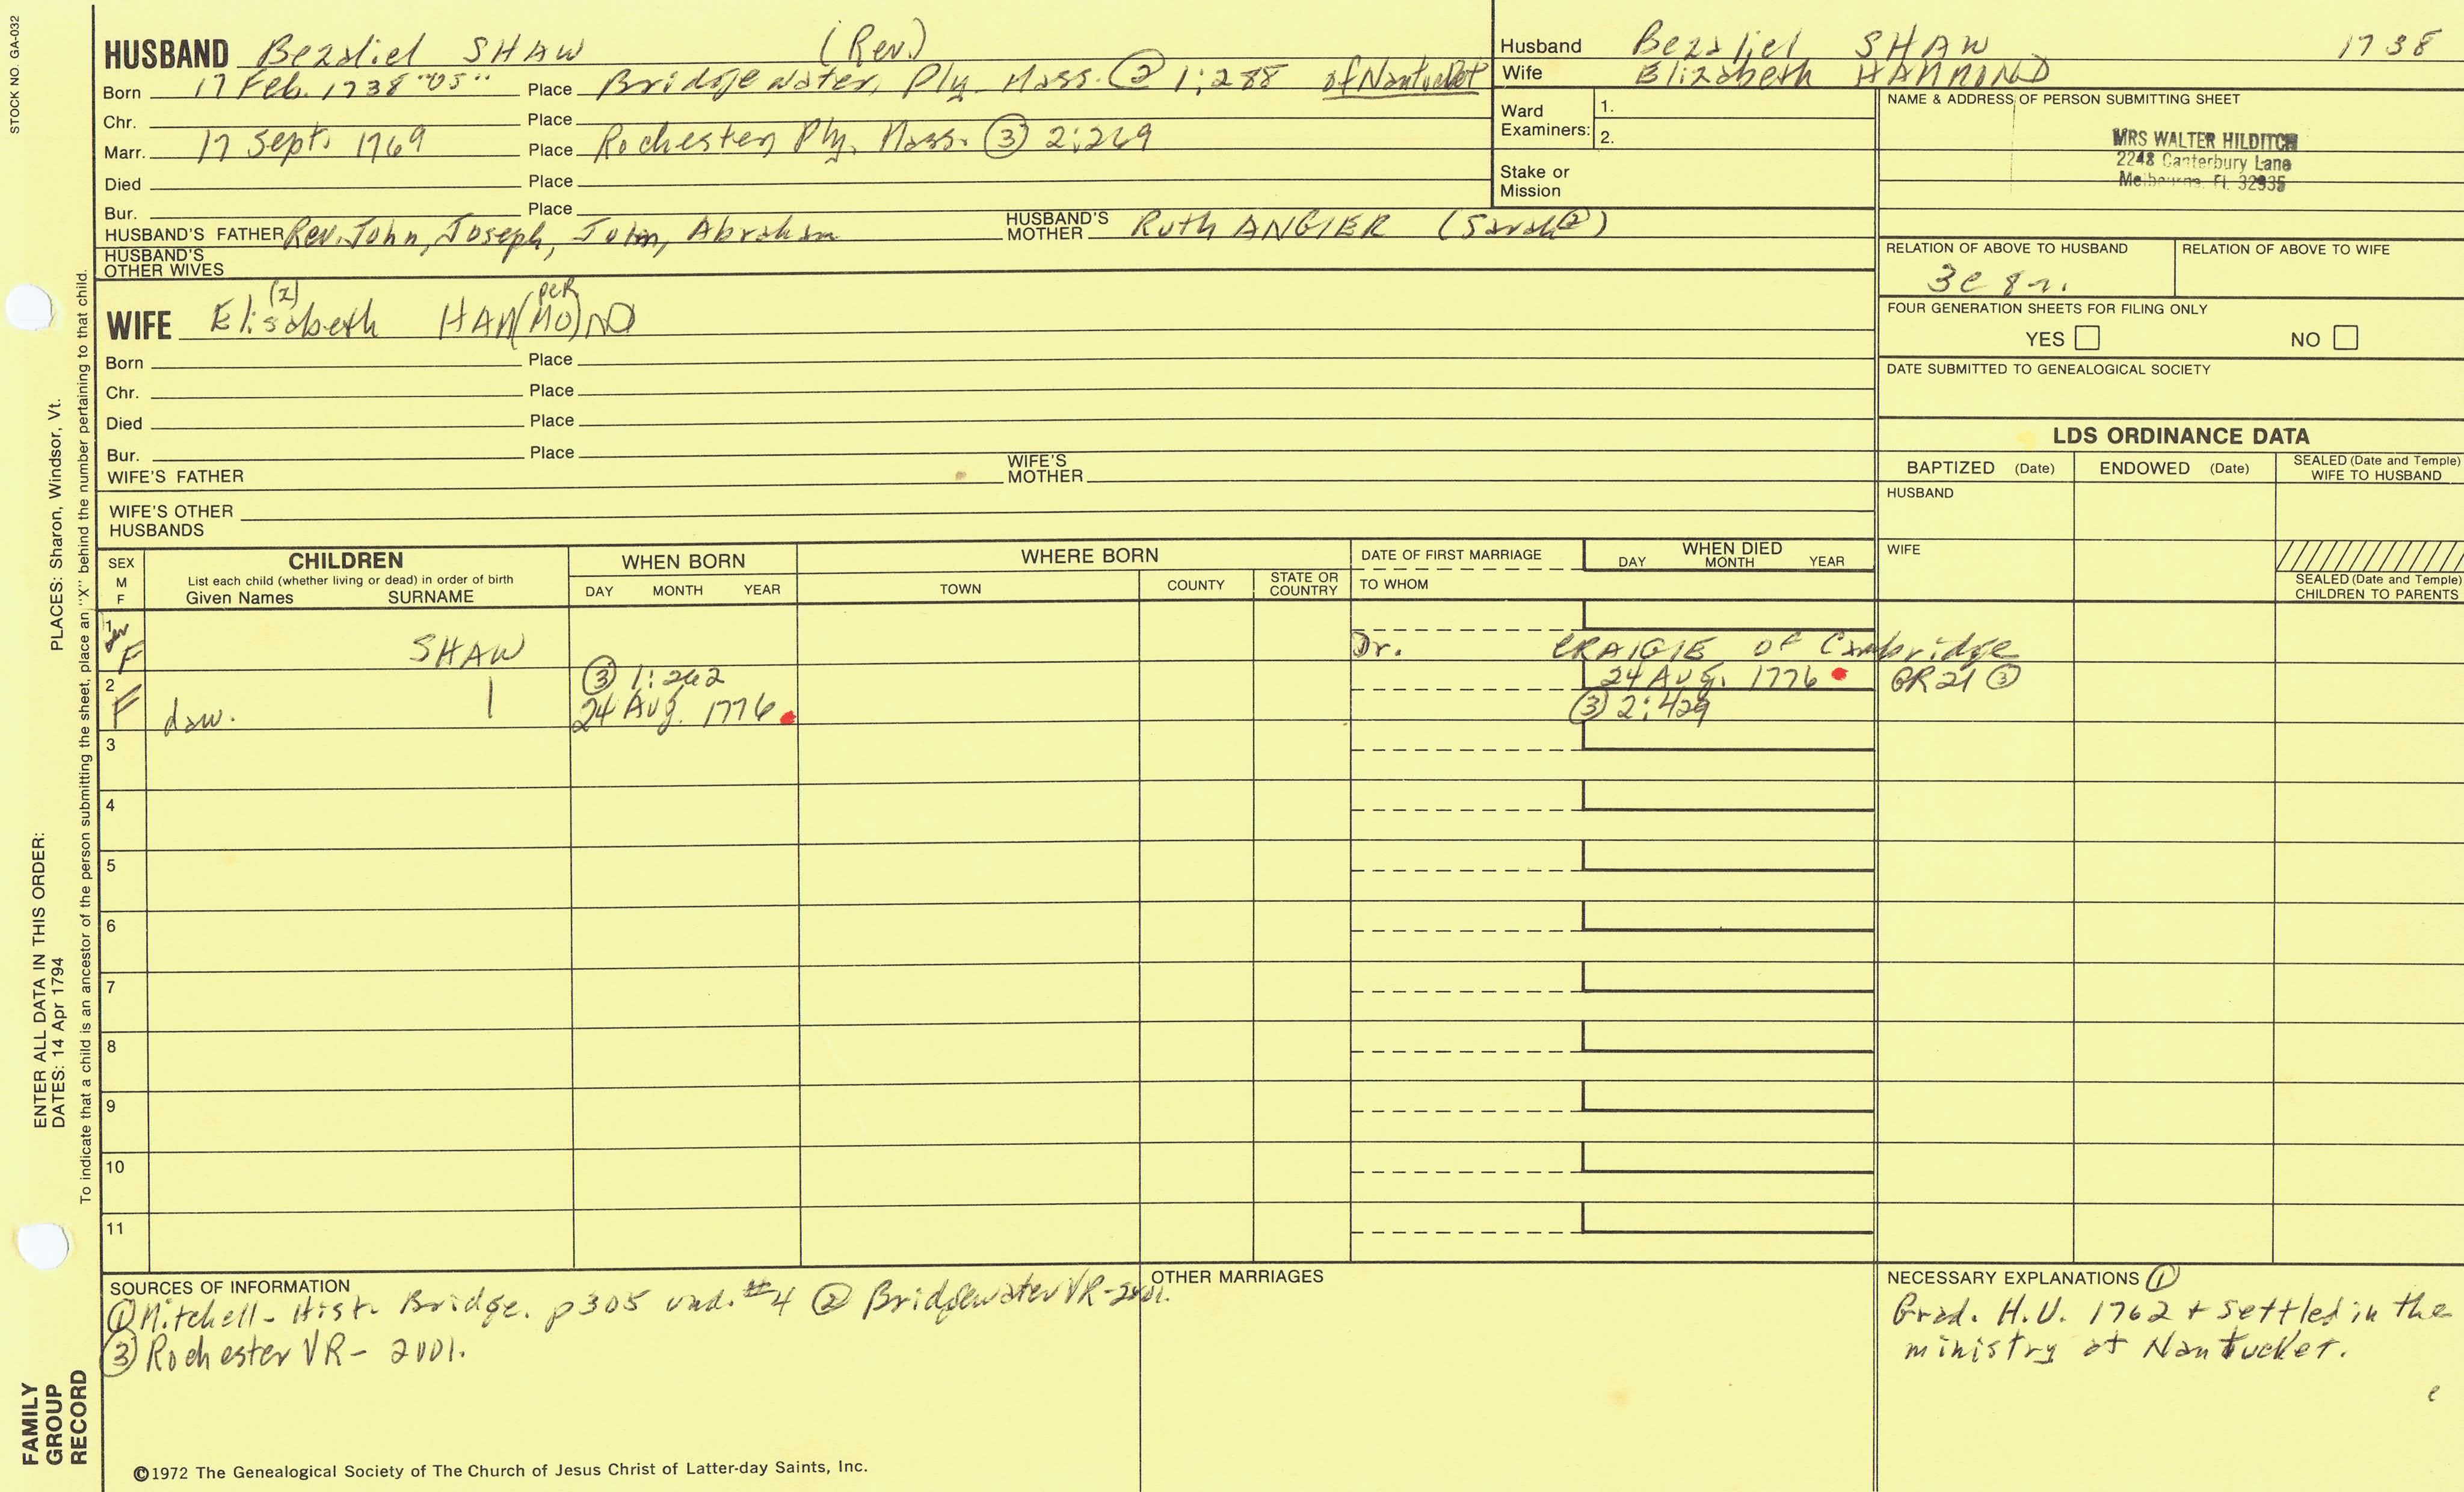 STOCK NO. GA-032
HUSBAND Bezaliel SHAW (Rev.)
Born 17 Feb. 1738 "OS" Place Bridgewater, Ply. Mass. ② 1:288 of Nantucket
Chr. Place
Marr. 17 Sept. 1769 Place Rochester, Ply. Mass. ③ 2:269
Died Place
Bur. Place
HUSBAND'S FATHER Rev. John, Joseph, John, Abraham HUSBAND'S MOTHER Ruth ANGIER (Sarah②)
HUSBAND'S OTHER WIVES
(z) per
WIFE Elisabeth HAM(MO)ND
Born Place
Chr. Place
Died Place
Bur. Place
WIFE'S FATHER WIFE'S MOTHER
WIFE'S OTHER HUSBANDS
Husband Bezaliel SHAW 1738
Wife Elizabeth HAMMOND
Ward Examiners: 1.
2.
Stake or Mission
NAME & ADDRESS OF PERSON SUBMITTING SHEET
MRS WALTER HILDITCH
2248 Canterbury Lane
Melbourne, Fl. 32935
RELATION OF ABOVE TO HUSBAND RELATION OF ABOVE TO WIFE
3c 8r.
FOUR GENERATION SHEETS FOR FILING ONLY
YES NO
DATE SUBMITTED TO GENEALOGICAL SOCIETY
LDS ORDINANCE DATA
BAPTIZED (Date) ENDOWED (Date) SEALED (Date and Temple) WIFE TO HUSBAND
HUSBAND
WIFE
SEALED (Date and Temple) CHILDREN TO PARENTS
SEX M F
CHILDREN
List each child (whether living or dead) in order of birth
Given Names SURNAME
WHEN BORN
DAY MONTH YEAR
WHERE BORN
TOWN COUNTY STATE OR COUNTRY
DATE OF FIRST MARRIAGE
TO WHOM
WHEN DIED
DAY MONTH YEAR
1 F SHAW Dr. CRAIGIE of Cambridge
2 ③ 1:262 24 Aug. 1776 GR21 ③
F daw. 24 Aug. 1776 ③ 2:429
3
4
5
6
7
8
9
10
11
SOURCES OF INFORMATION
① Mitchell- Hist. Bridge. p305 und. #4 ② Bridgewater VR-2001.
③ Rochester VR- 2001.
OTHER MARRIAGES
NECESSARY EXPLANATIONS ①
Grad. H.U. 1762 + settled in the
ministry at Nantucket.
e
©1972 The Genealogical Society of The Church of Jesus Christ of Latter-day Saints, Inc.
FAMILY
GROUP
RECORD
ENTER ALL DATA IN THIS ORDER:
DATES: 14 Apr 1794 PLACES: Sharon, Windsor, Vt.
To indicate that a child is an ancestor of the person submitting the sheet, place an "X" behind the number pertaining to that child.